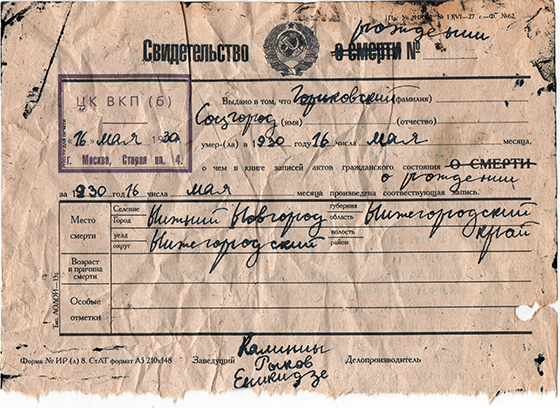 рождении
Свидетельство О СМЕРТИ №
ЦК ВКП (б)
16 мая 1930
г. Москва, Старая пл. 4.
Выдано в том, что Гориковский (фамилия)
Соцгород (имя) (отчество)
умер-(ла) в 1930 году 16 числа мая месяца.
о чем в книге записей актов гражданского состояния О СМЕРТИ
о рождении
за 1930 год 16 числа мая месяца произведена соотвествующая запись.
Место смерти
Селение
Город Нижний Новгород
губерния
область Нижегородский
край
уезд
округ Нижегородский
волость
район
Возраст и причина смерти
Особые отметки
Форма № ИР (л) 8. СтАТ формат А5 210х148 Заведущий Делопроизводитель
Калинин
Рыков
Енукидзе